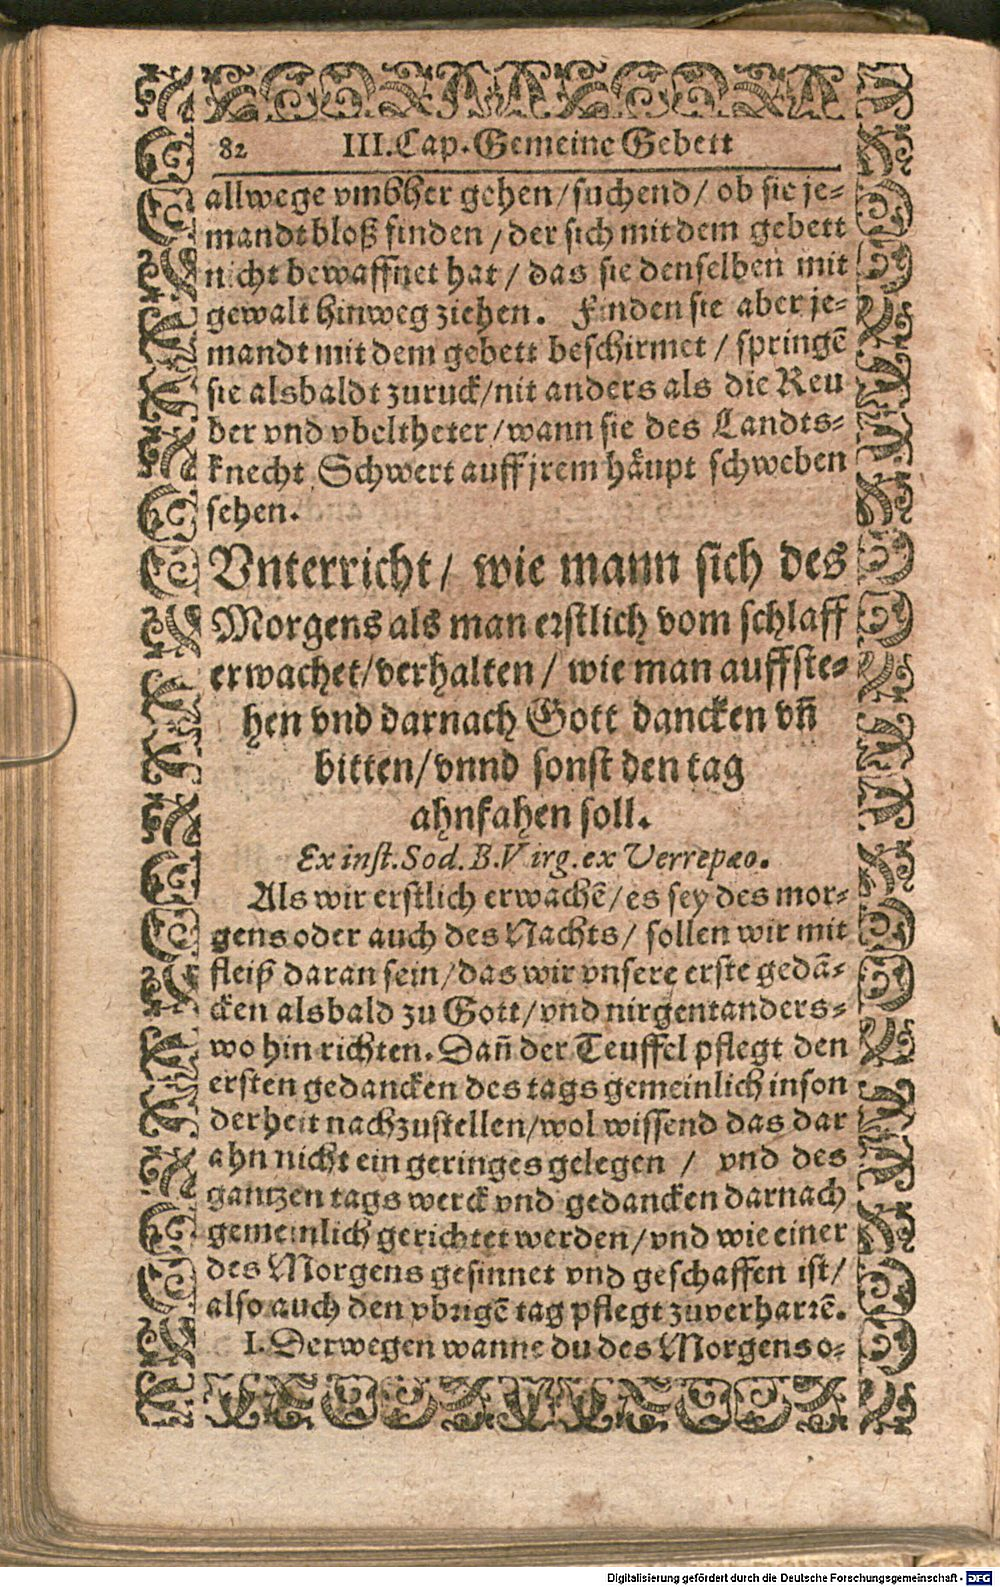 82 III. Cap. Gemeine Gebett
allwege vmbher gehen / suchend / ob sie je-
mandt bloß finden / der sich mit dem gebett
nicht bewaffnet hat / das sie denselben mit
gewalt hinweg ziehen. Finden sie aber je-
mandt mit dem gebett beschirmet / springẽ
sie alsbaldt zuruck / nit anders als die Reu
ber vnd vbeltheter / wann sie des Landts-
knecht Schwert auff jrem häupt schweben
sehen.
Vnterricht / wie mann sich des
Morgens als man erstlich vom schlaff
erwachet / verhalten / wie man auffste-
hen vnd darnach Gott dancken vñ
bitten / vnnd sonst den tag
ahnfahen soll.
Ex inst. Sod. B. Virg. ex Verrepæo.
Als wir erstlich erwachẽ / es sey des mor-
gens oder auch des Nachts / sollen wir mit
fleiß daran sein / das wir vnsere erste gedã-
cken alsbald zu Gott / vnd nirgent anders-
wo hin richten. Dañ der Teuffel pflegt den
ersten gedancken des tags gemeinlich inson
derheit nachzustellen / wol wissend das dar
ahn nicht ein geringes gelegen / vnd des
gantzen tags werck vnd gedancken darnach
gemeinlich gerichtet werden / vnd wie einer
des Morgens gesinnet vnd geschaffen ist /
also auch den vbrigẽ tag pflegt zuverharrẽ.
I. Derwegen wanne du des Morgens o-
Digitalisierung gefördert durch die Deutsche Forschungsgemeinschaft - DFG